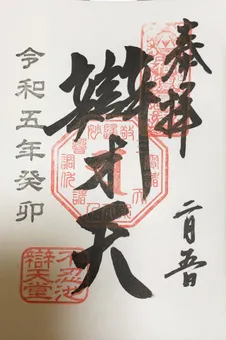 奉拝
二月五日
辯才天
令和五年癸卯
不忍池
辯天堂